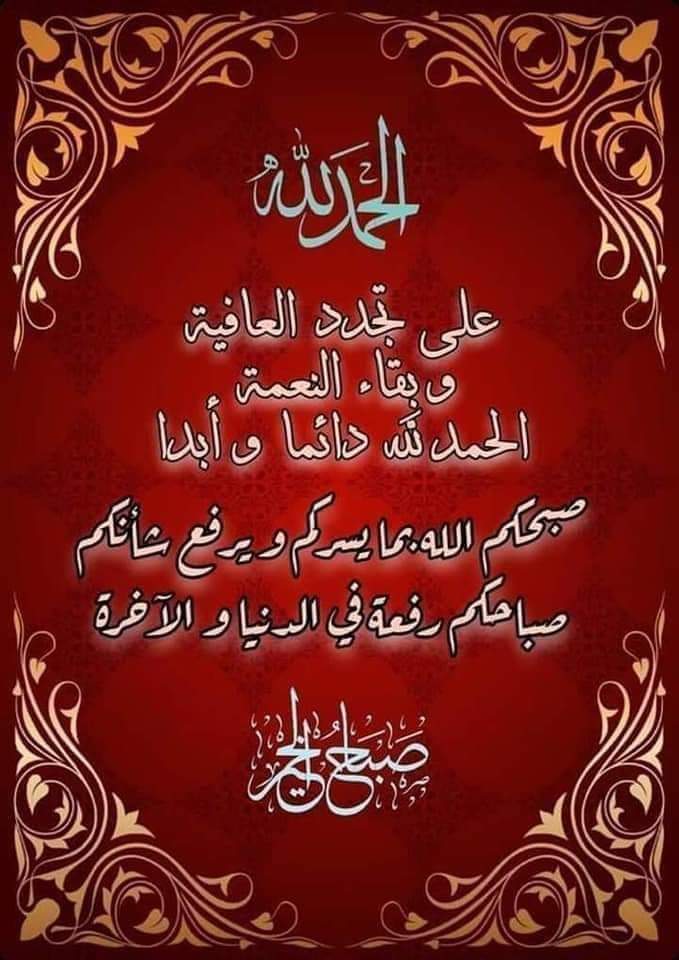 الحمد لله
على تجدد العافية
وبقاء النعمة
الحمد لله دائما وأبدا
صبحكم الله بما يسركم ويرفع شأنكم
صباحكم رفعة في الدنيا و الآخرة
صباح الخير